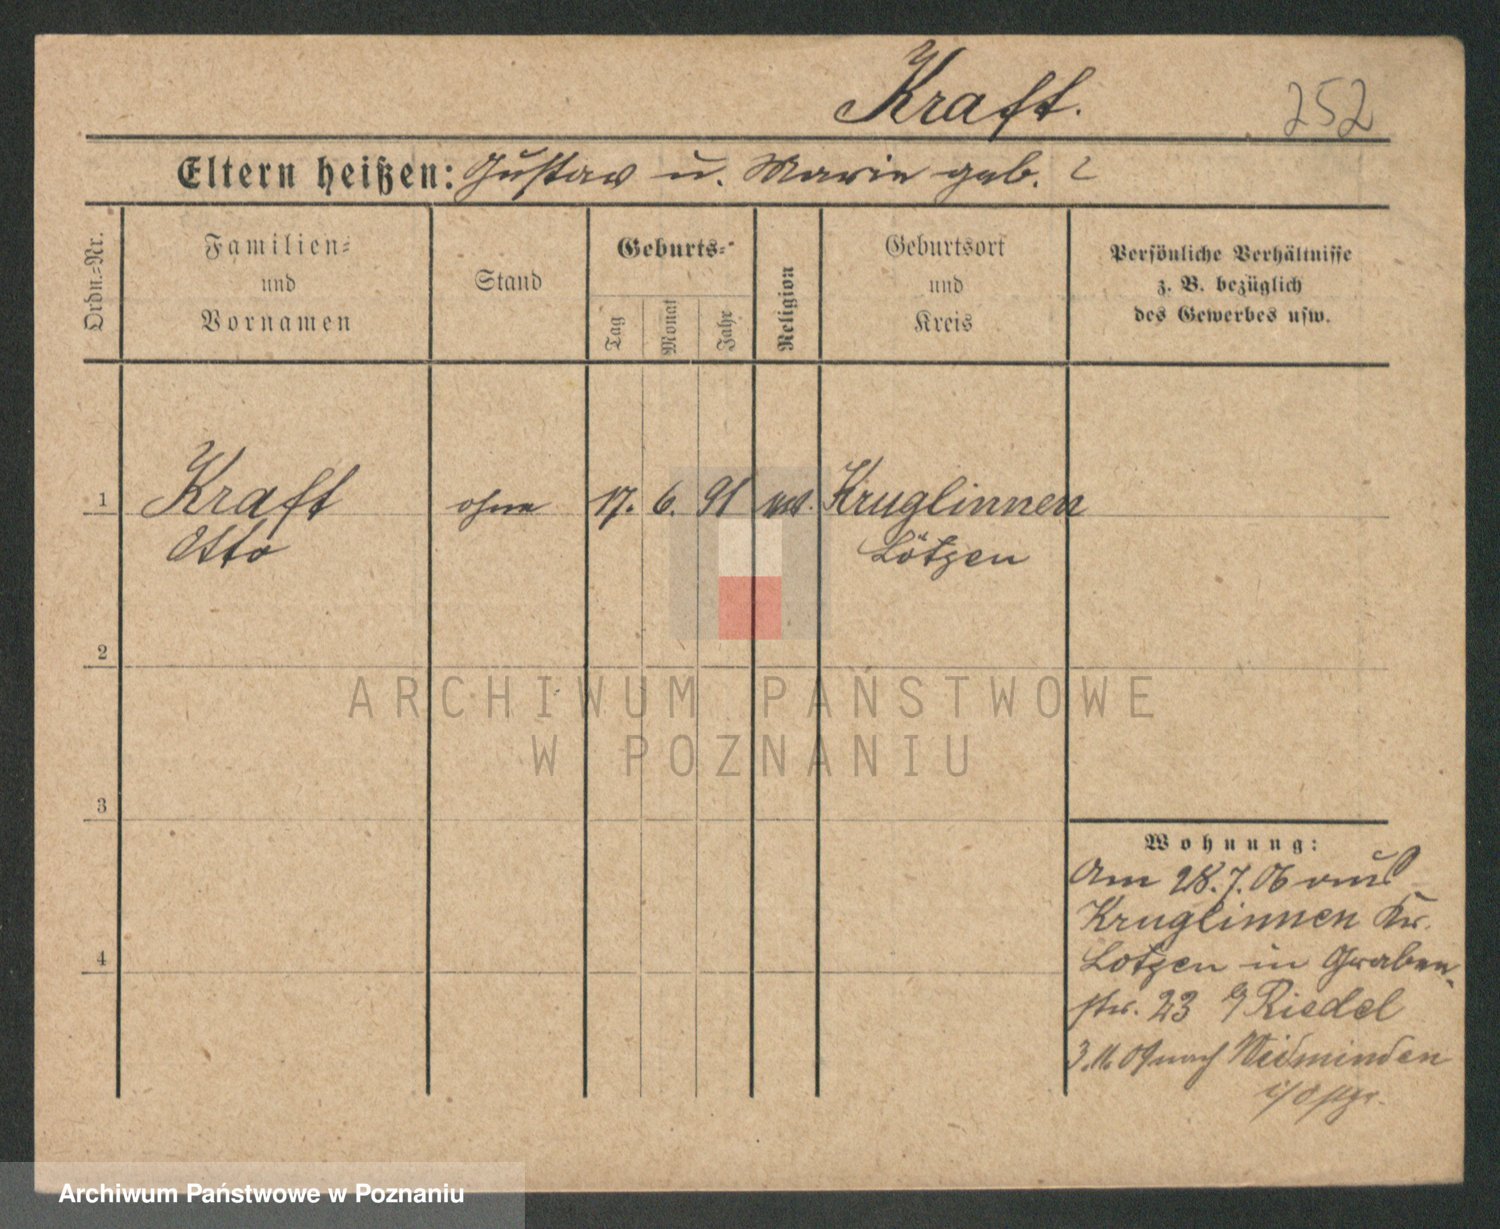 Kraft.
252
Eltern heißen: Gustav u. Marie geb. ?
Ordn.=Nr.
Familien=
und
Vornamen
Stand
Geburts=
Tag
Monat
Jahr
Religion
Geburtsort
und
Kreis
Persönliche Verhältnisse
z. B. bezüglich
des Gewerbes usw.
1 Kraft ohne 17. 6. 91 Kruglinnen
Otto Lötzen
2
ARCHIWUM PAŃSTWOWE
W POZNANIU
3
Wohnung:
Am 28.7.06 aus
Kruglinnen Kr.
4
Lötzen in Graben
str. 23 Riedel
3.11.09 nach Widminnen
i/Ospr.
Archiwum Państwowe w Poznaniu